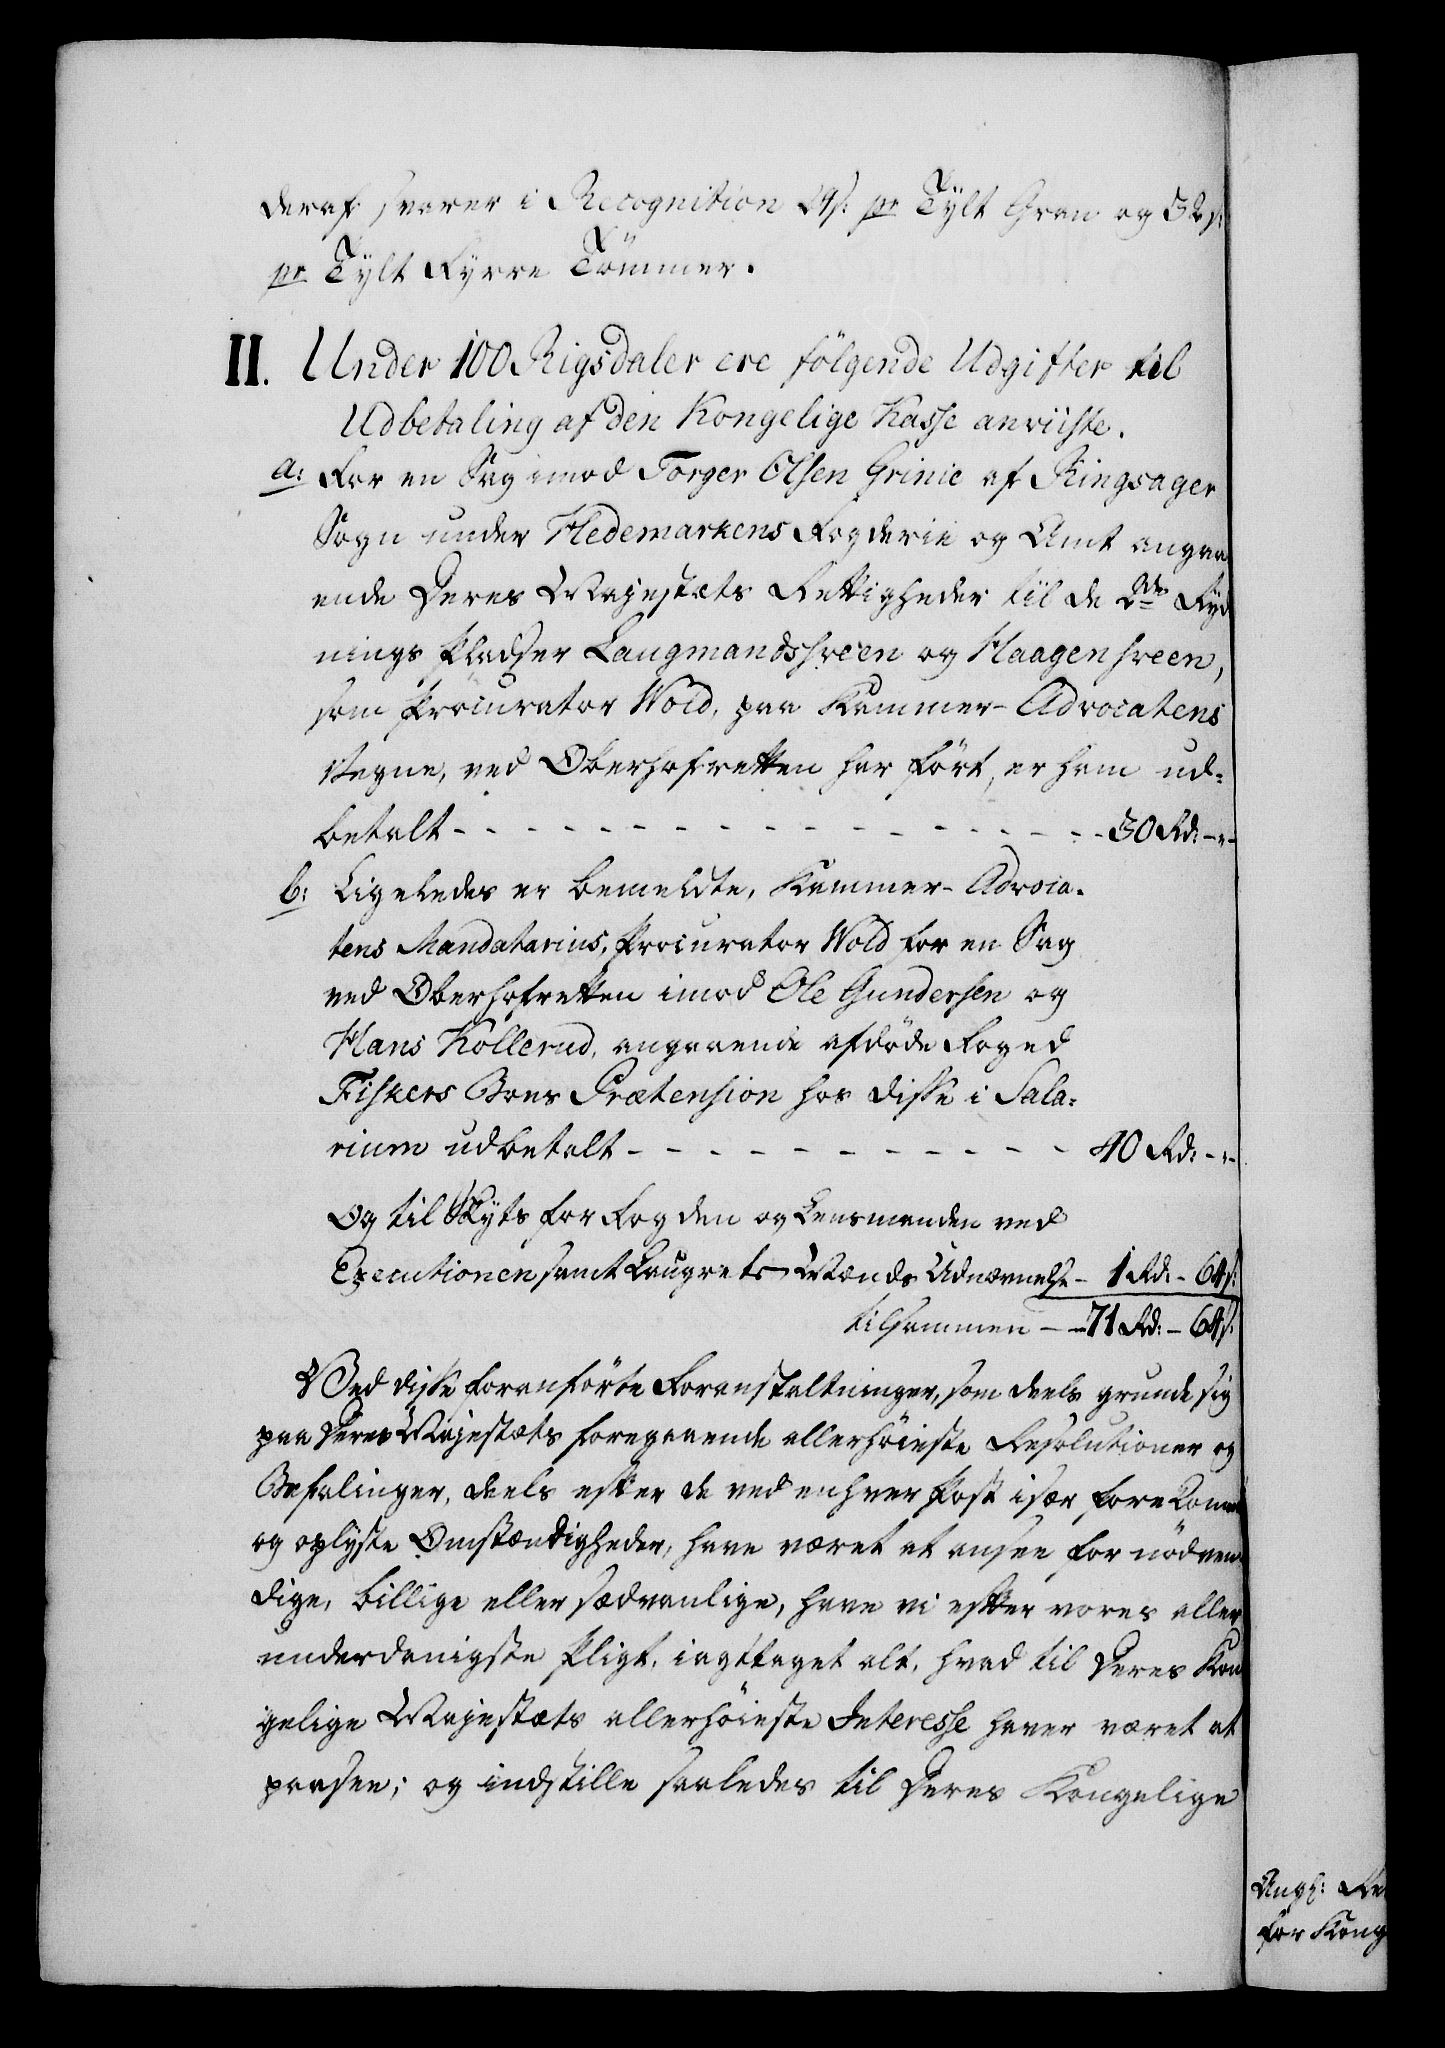 deraf svarer i Recognition 24 s: pr Tylt Gran og 32 s:
pr Tylt Fyrre Tömmer.
II. Under 100 Rigsdaler ere fölgende Udgifter til
Udbetaling af den Kongelige Kasse anviiste.
a: For en Sag imod Torger Olsen Grinie af Ringsager
Sogn under Hedemarkens Fogderie og Amt angaa
ende Deres Majestæts Rettigheder til de 2de Ryd
nings Pladser Laugmandshreen og Haagenhreen,
som Procurator Wold, paa Kammer-Advocatens
Vegne, ved Oberhofretten har fört, er ham ud-
betalt - - - 30 Rd: - "-
b: Ligeledes er bemeldte, Kammer-Advoca-
tens Mandatarius, Procurator Wold for en Sag
ved Oberhofretten imod Ole Gundersen og
Hans Kollerud, angaaende afdöde Foged
Fiskers Boes Prætension hos disse i Sala-
rium udbetalt - - - 40 Rd: - "-
Og til Skyts for Fogden og Lensmanden ved
Executionen samt Laugrets Mænds Udnævnelse - 1 Rd: - 64 s:
tilsammen - - 71 Rd: - 64 s:
Ved disse foranförte Foranstaltninger, som deels grunde sig
paa Deres Majestæts foregaaende allerhöieste Resolutioner og
Befalinger, deels efter de ved enhver Post især forekomne
og oplyste Omstændigheder, have været at ansee for nödven
dige, billige eller sædvanlige, have vi efter vores aller
underdanigste Pligt, iagttaget alt, hvad til Deres Kon
gelige Majestæts allerhöieste Interesse haver været at
paasee; og indstille saaledes til Deres Kongelige
Angf: Re
for Kong